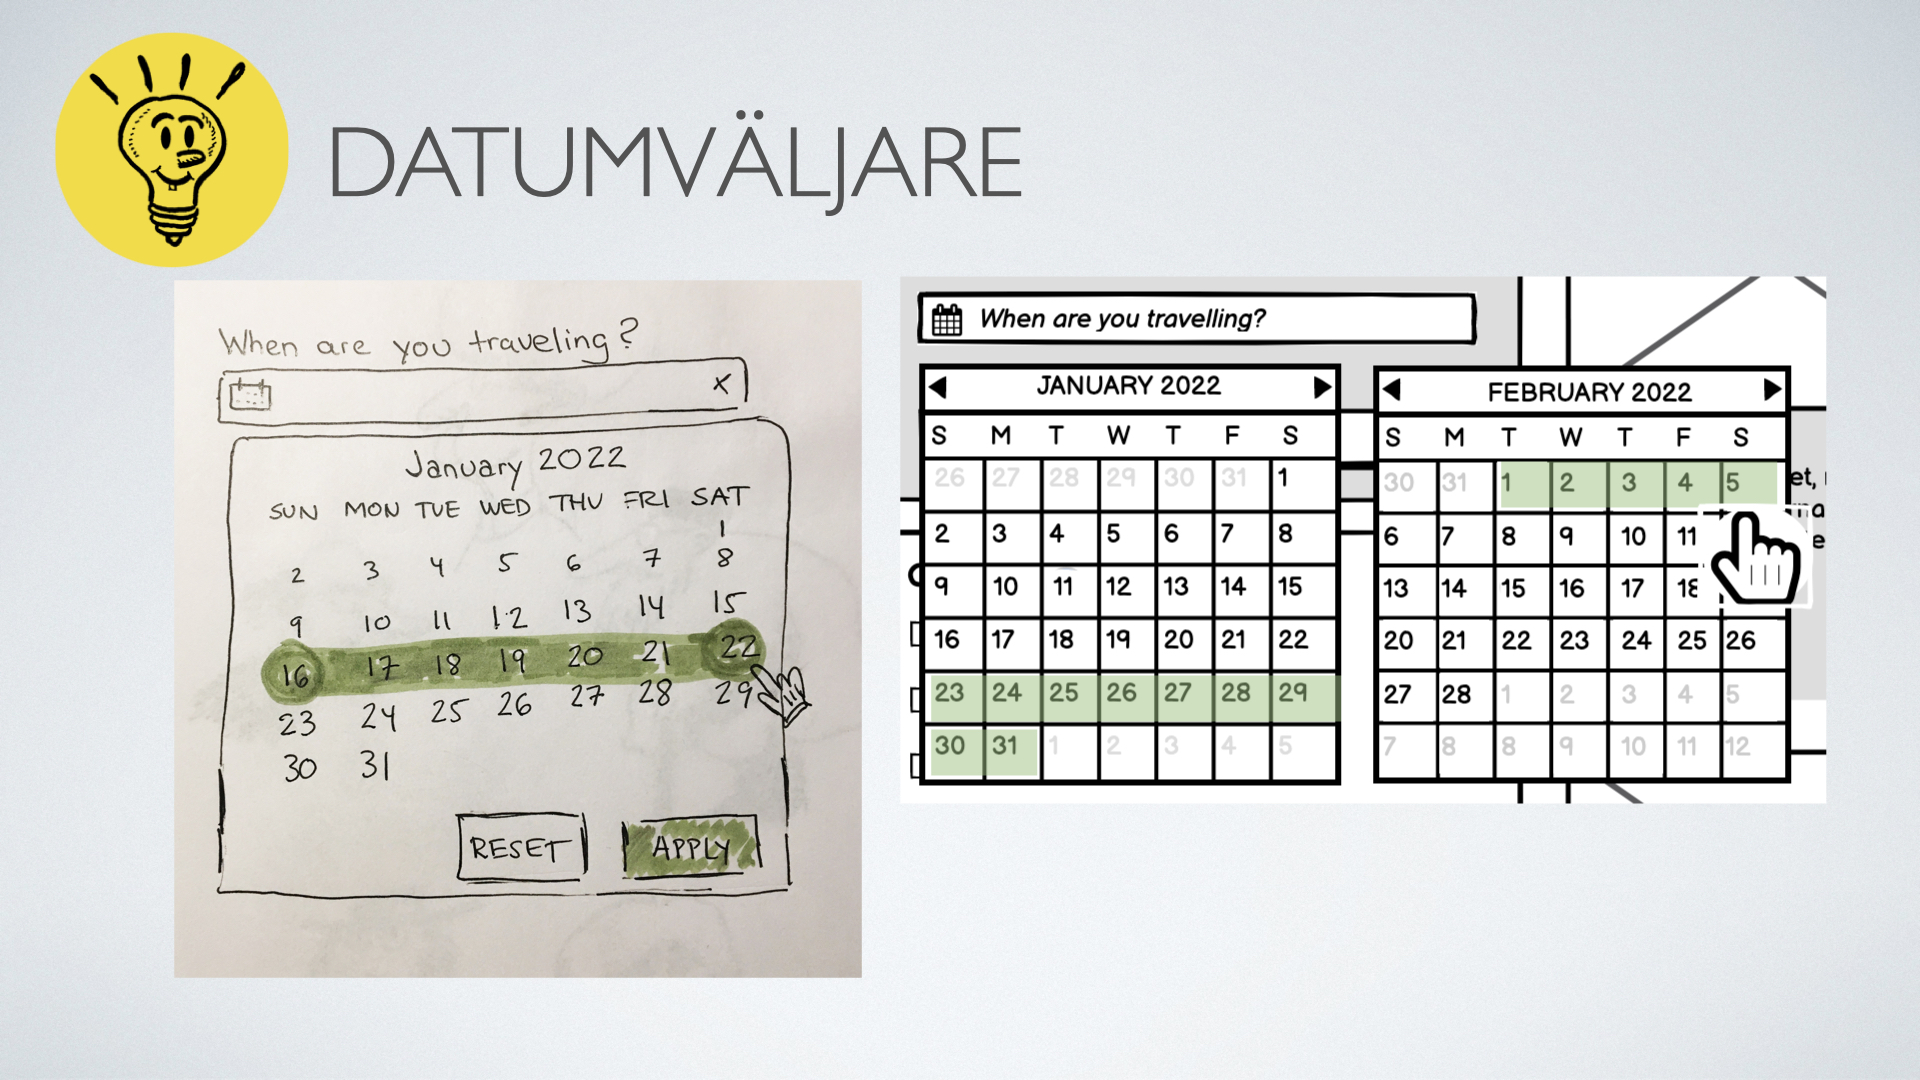 DATUMVÄLJARE
When are you traveling?
X
January 2022
SUN MON TUE WED THU FRI SAT
1
2 3 4 5 6 7 8
9 10 11 12 13 14 15
16 17 18 19 20 21 22
23 24 25 26 27 28 29
30 31
RESET APPLY
When are you travelling?
JANUARY 2022
S M T W T F S
26 27 28 29 30 31 1
2 3 4 5 6 7 8
9 10 11 12 13 14 15
16 17 18 19 20 21 22
23 24 25 26 27 28 29
30 31 1 2 3 4 5
FEBRUARY 2022
S M T W T F S
30 31 1 2 3 4 5
6 7 8 9 10 11
13 14 15 16 17 18
20 21 22 23 24 25 26
27 28 1 2 3 4 5
7 8 8 9 10 11 12
et,